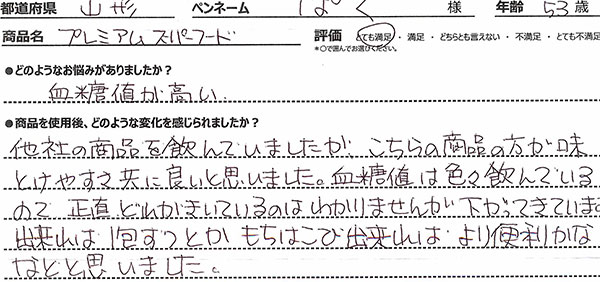 都道府県 山形 ペンネーム ぱく 様 年齢 53 歳
商品名 プレミアムスーパーフード 評価 とても満足 ・ 満足 ・ どちらとも言えない ・ 不満足 ・ とても不満足
*○で囲んでお選びください。
●どのようなお悩みがありましたか?
血糖値が高い
●商品を使用後、どのような変化を感じられましたか?
他社の商品を飲んでいましたが、こちらの商品の方が味
とけやすさ共に良いと思いました。血糖値は色々飲んでいる
ので 正直 どれがきいているのはわかりませんが下がってきています
出来れば 1包ずつとか もちはこび出来れば より便利かな
などと思いました。